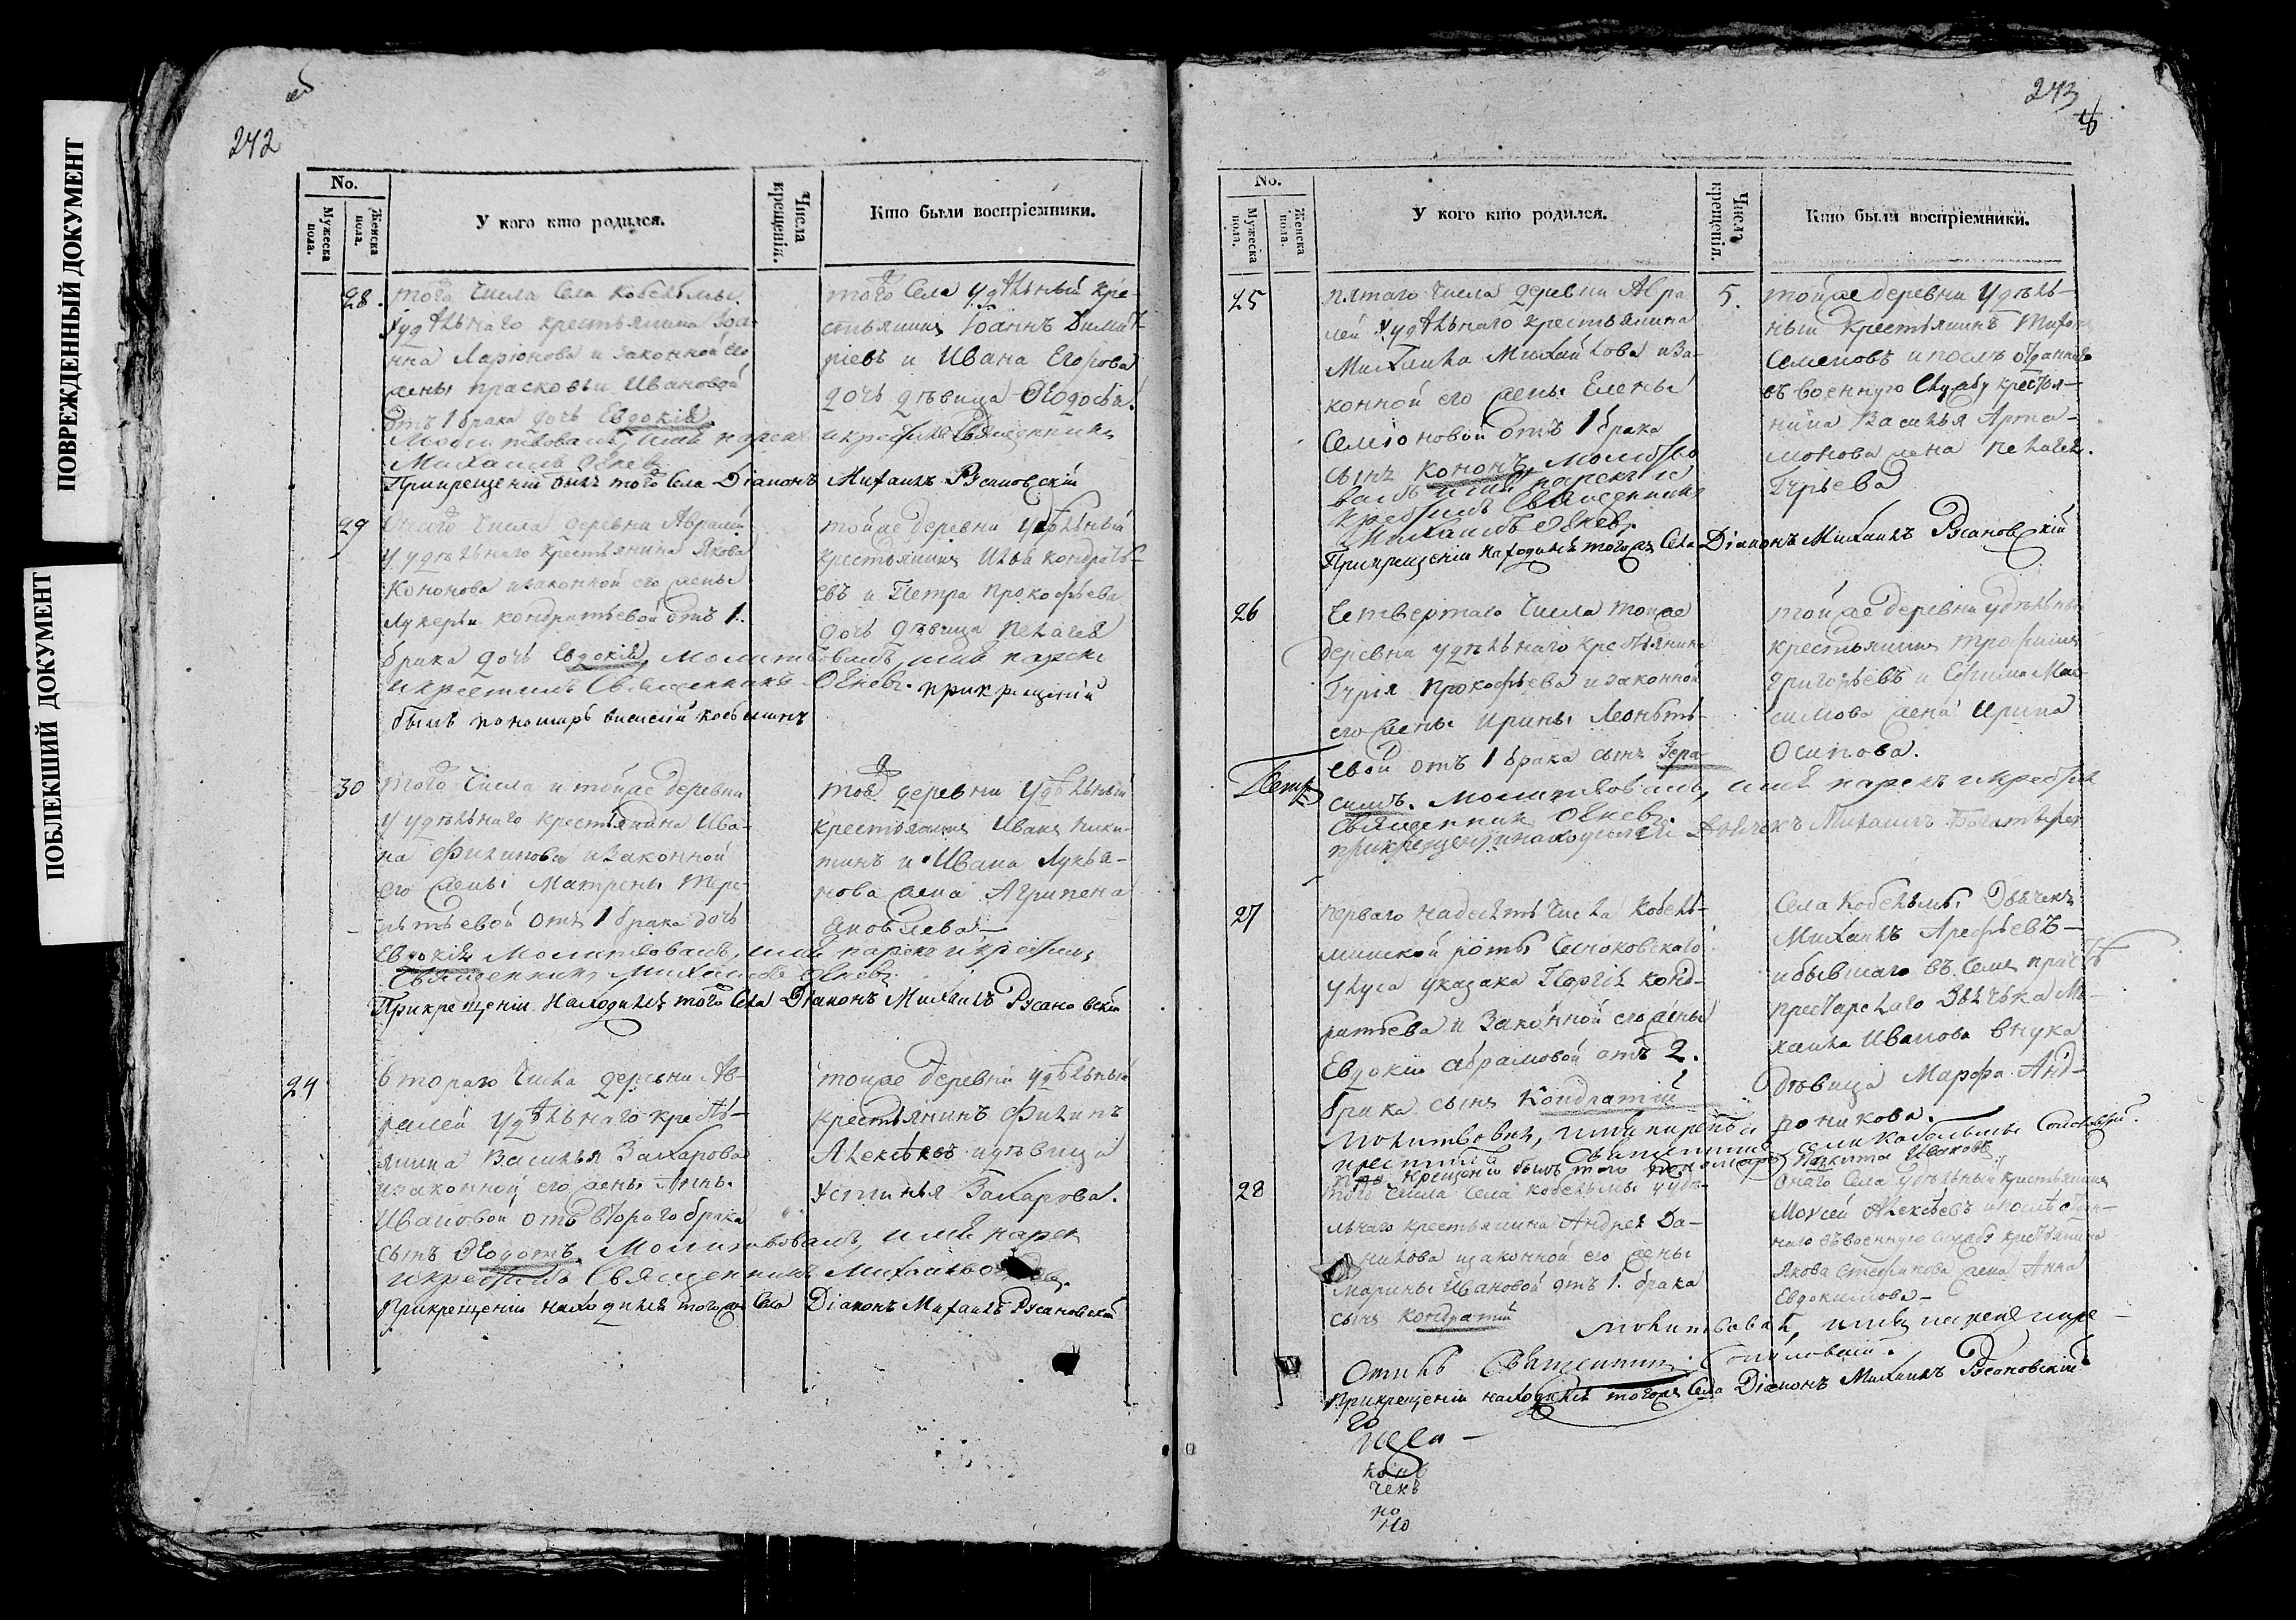 ПОВРЕЖДЕННЫЙ ДОКУМЕНТ
ПОБЛЕКШИЙ ДОКУМЕНТ
242
No.
Мужеска пола.
Женска пола.
У кого кто родился.
Числа крещенія.
Кто были воспріемники.
28.
того числа села Кобельмы
у удѣльнаго крестьянина Іоа-
нна Ларіонова и законной его
жены Прасковьи Ивановой
отъ 1 брака дочь Евдокія.
Молитвовалъ, имя нарекъ и крестилъ Священникъ
Михаилъ
При крещеніи былъ того села Діаконъ Михаилъ Русановскій
того села удѣльный кре-
стьянинъ Іоаннъ Димит-
ріевъ и Ивана Егорова
дочь дѣвица Ѳеодосія.
29
Онаго числа деревни Аврамей
у удѣльнаго крестьянина Якова
Кононова и законной его жены
Лукерьи Кондратьевой отъ 1.
брака дочь Евдокія, Молитвовалъ, имя нарекъ
и крестилъ Священникъ при крещеніи
былъ пономарь
тойже деревни удѣльный
крестьянинъ Илья Кондрать-
евъ и Петра Прокофьева
дочь дѣвица Пелагея
30
того числа и тойже деревни
у удѣльнаго крестьянина Ива-
на Филипова и законной
его жены Матрены Тере-
нтьевой отъ 1 брака дочь
Евдокія Молитвовалъ, имя нарекъ и крестилъ
Священникъ Михаилъ
При крещеніи находился того села Діаконъ Михаилъ Русановскій
той деревни удѣльный
крестьянинъ Иванъ Ники-
тинъ и Ивана Лукья-
нова жена Агрипена
Яковлева
24
втораго числа деревни Ав-
рамей удѣльнаго кресть-
янина Василья Захарова
и законной его жены Анны
Ивановой отъ втораго брака
сынъ Ѳедотъ Молитвовалъ, имя нарекъ
и крестилъ Священникъ Михаилъ
При крещеніи находился тогоже села Діаконъ Михаилъ Русановскій
тойже деревни удѣльный
крестьянинъ Филипъ
Алексѣевъ и дѣвица
Устинья Захарова.
243
No.
Мужеска пола.
Женска пола.
У кого кто родился.
Числа крещенія.
Кто были воспріемники.
25
пятаго числа деревни Авра
мей у удѣльнаго крестьянина
Михаила Михайлова и за-
конной его жены Елены
Семіоновой отъ 1 брака
сынъ Кононъ, Молитво
валъ имя нарекъ и
крестилъ Священникъ
Михаилъ
При крещеніи находился тогожъ села Діаконъ Михаилъ Русановскій
5.
тойже деревни удѣль-
ный крестьянинъ Тихонъ
Семеновъ и послѣ отданнаго
въ военную службу крестья-
нина Василья Арта-
монова жена Пелагея
Гурьева
26
Четвертаго числа тойже
деревни удѣльнаго крестьянина
Гурія Прокофьева и законной
его жены Ирины Леонтье-
вой отъ 1 брака сынъ Гера-
симъ. Молитвовалъ, имя нарекъ и крестилъ
Священникъ
при крещеніи находился Дьячекъ Михаилъ
тойже деревни удѣльный
крестьянинъ Трофимъ
Григорьевъ и Ефима Мак-
симова жена Ирина
Осипова.
27
перваго надесять числа Кобель-
мпской роты
указака Георгія Конд-
ратьева и законной его жены
Евдокіи Абрамовой отъ 2.
брака сынъ Кондратій
Молитвовалъ, имя нарекъ и
крестилъ Священникъ села Кобельмы
при крещеніи былъ того Пономарь Никита Ивановъ
Села Кобельмы Дьячекъ
Михаилъ Арефьевъ
и бывшаго въ семъ
престарелаго Дьячька Ми-
хаила Иванова внука
дѣвица Марфа Анд-
роникова.
28
того числа села Кобельмы у удѣ-
льнаго крестьянина Андрея Да-
нилова и законной его жены
Марины Ивановой отъ 1. брака
сынъ Кондратій
молитвовалъ, имя нарекъ и кре-
стилъ Священникъ
При крещеніи находился тогожъ села Діаконъ Михаилъ Русановскій
онаго села удѣльный крестьянинъ
Моисей Алексѣевъ и послѣ отдан-
наго въ военную службу крестьянина
Якова Стефанова жена Анна
Евдокимова